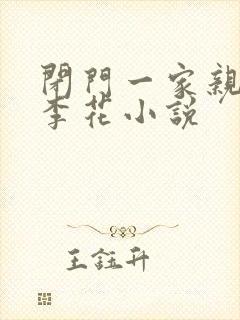 閉門一家親
李花小說
王鈺升